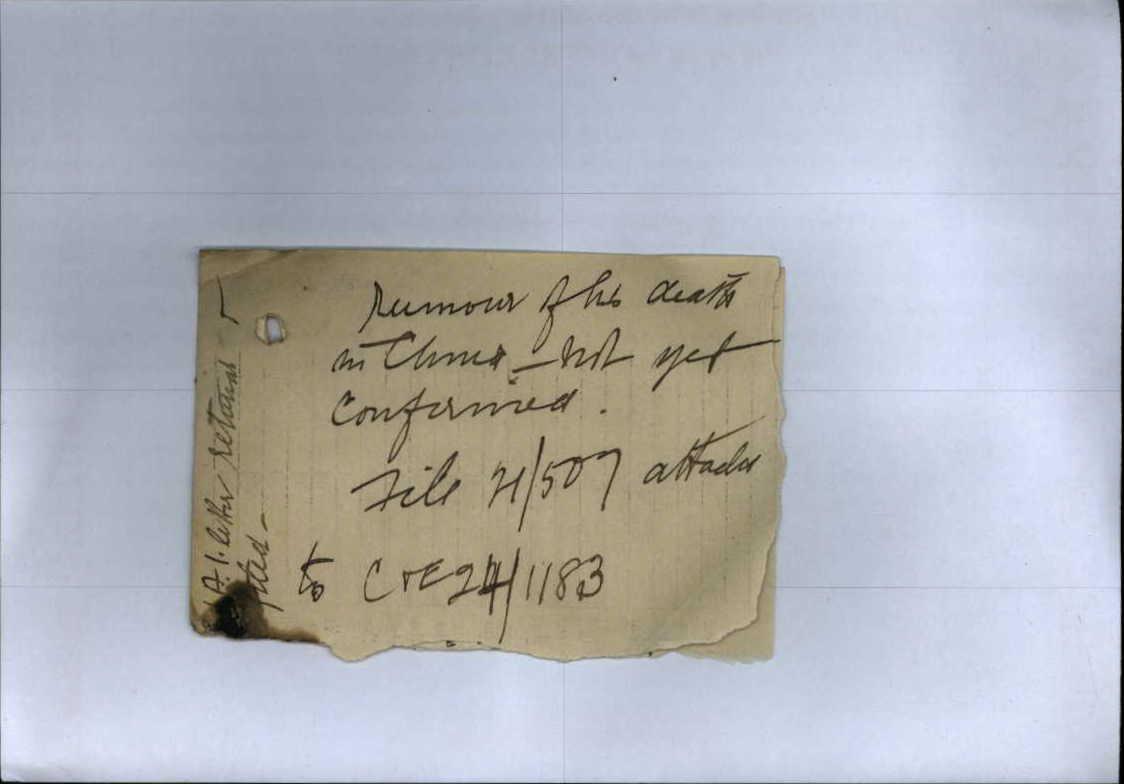 Rumour of his death
in China - not yet
confirmed.
File 21/507 attached
to C & E 24/1183
A.1. letter retained